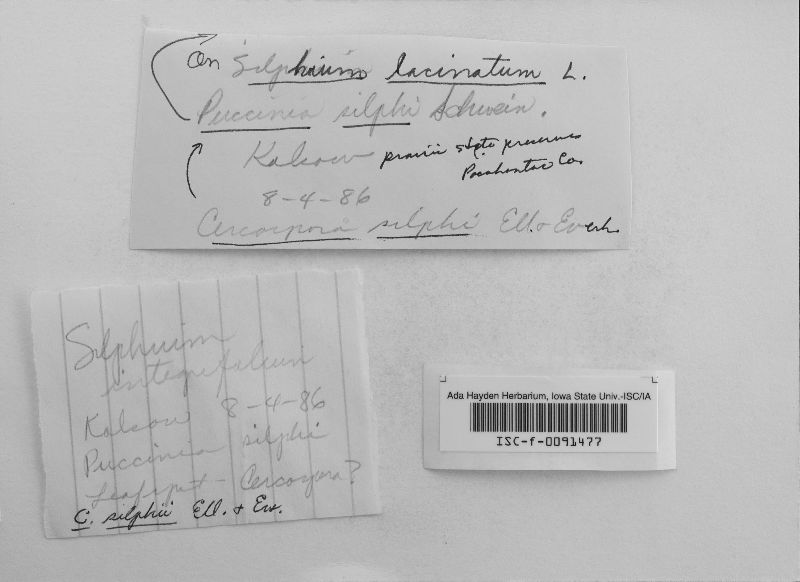 On Silphium lacinatum L.
Puccinia silphi Schwein.
Kalsow prairie state preserves
Pocahontas Co.
8-4-86
Cercospora silphi Ell. & Everh.
Silphium
integrifolium
Kalsow 8-4-86
Puccinia silphi
Leafspot - Cercospora?
C. silphii Ell. & Ev.
Ada Hayden Herbarium, Iowa State Univ.-ISC/IA
ISC-f-0091477